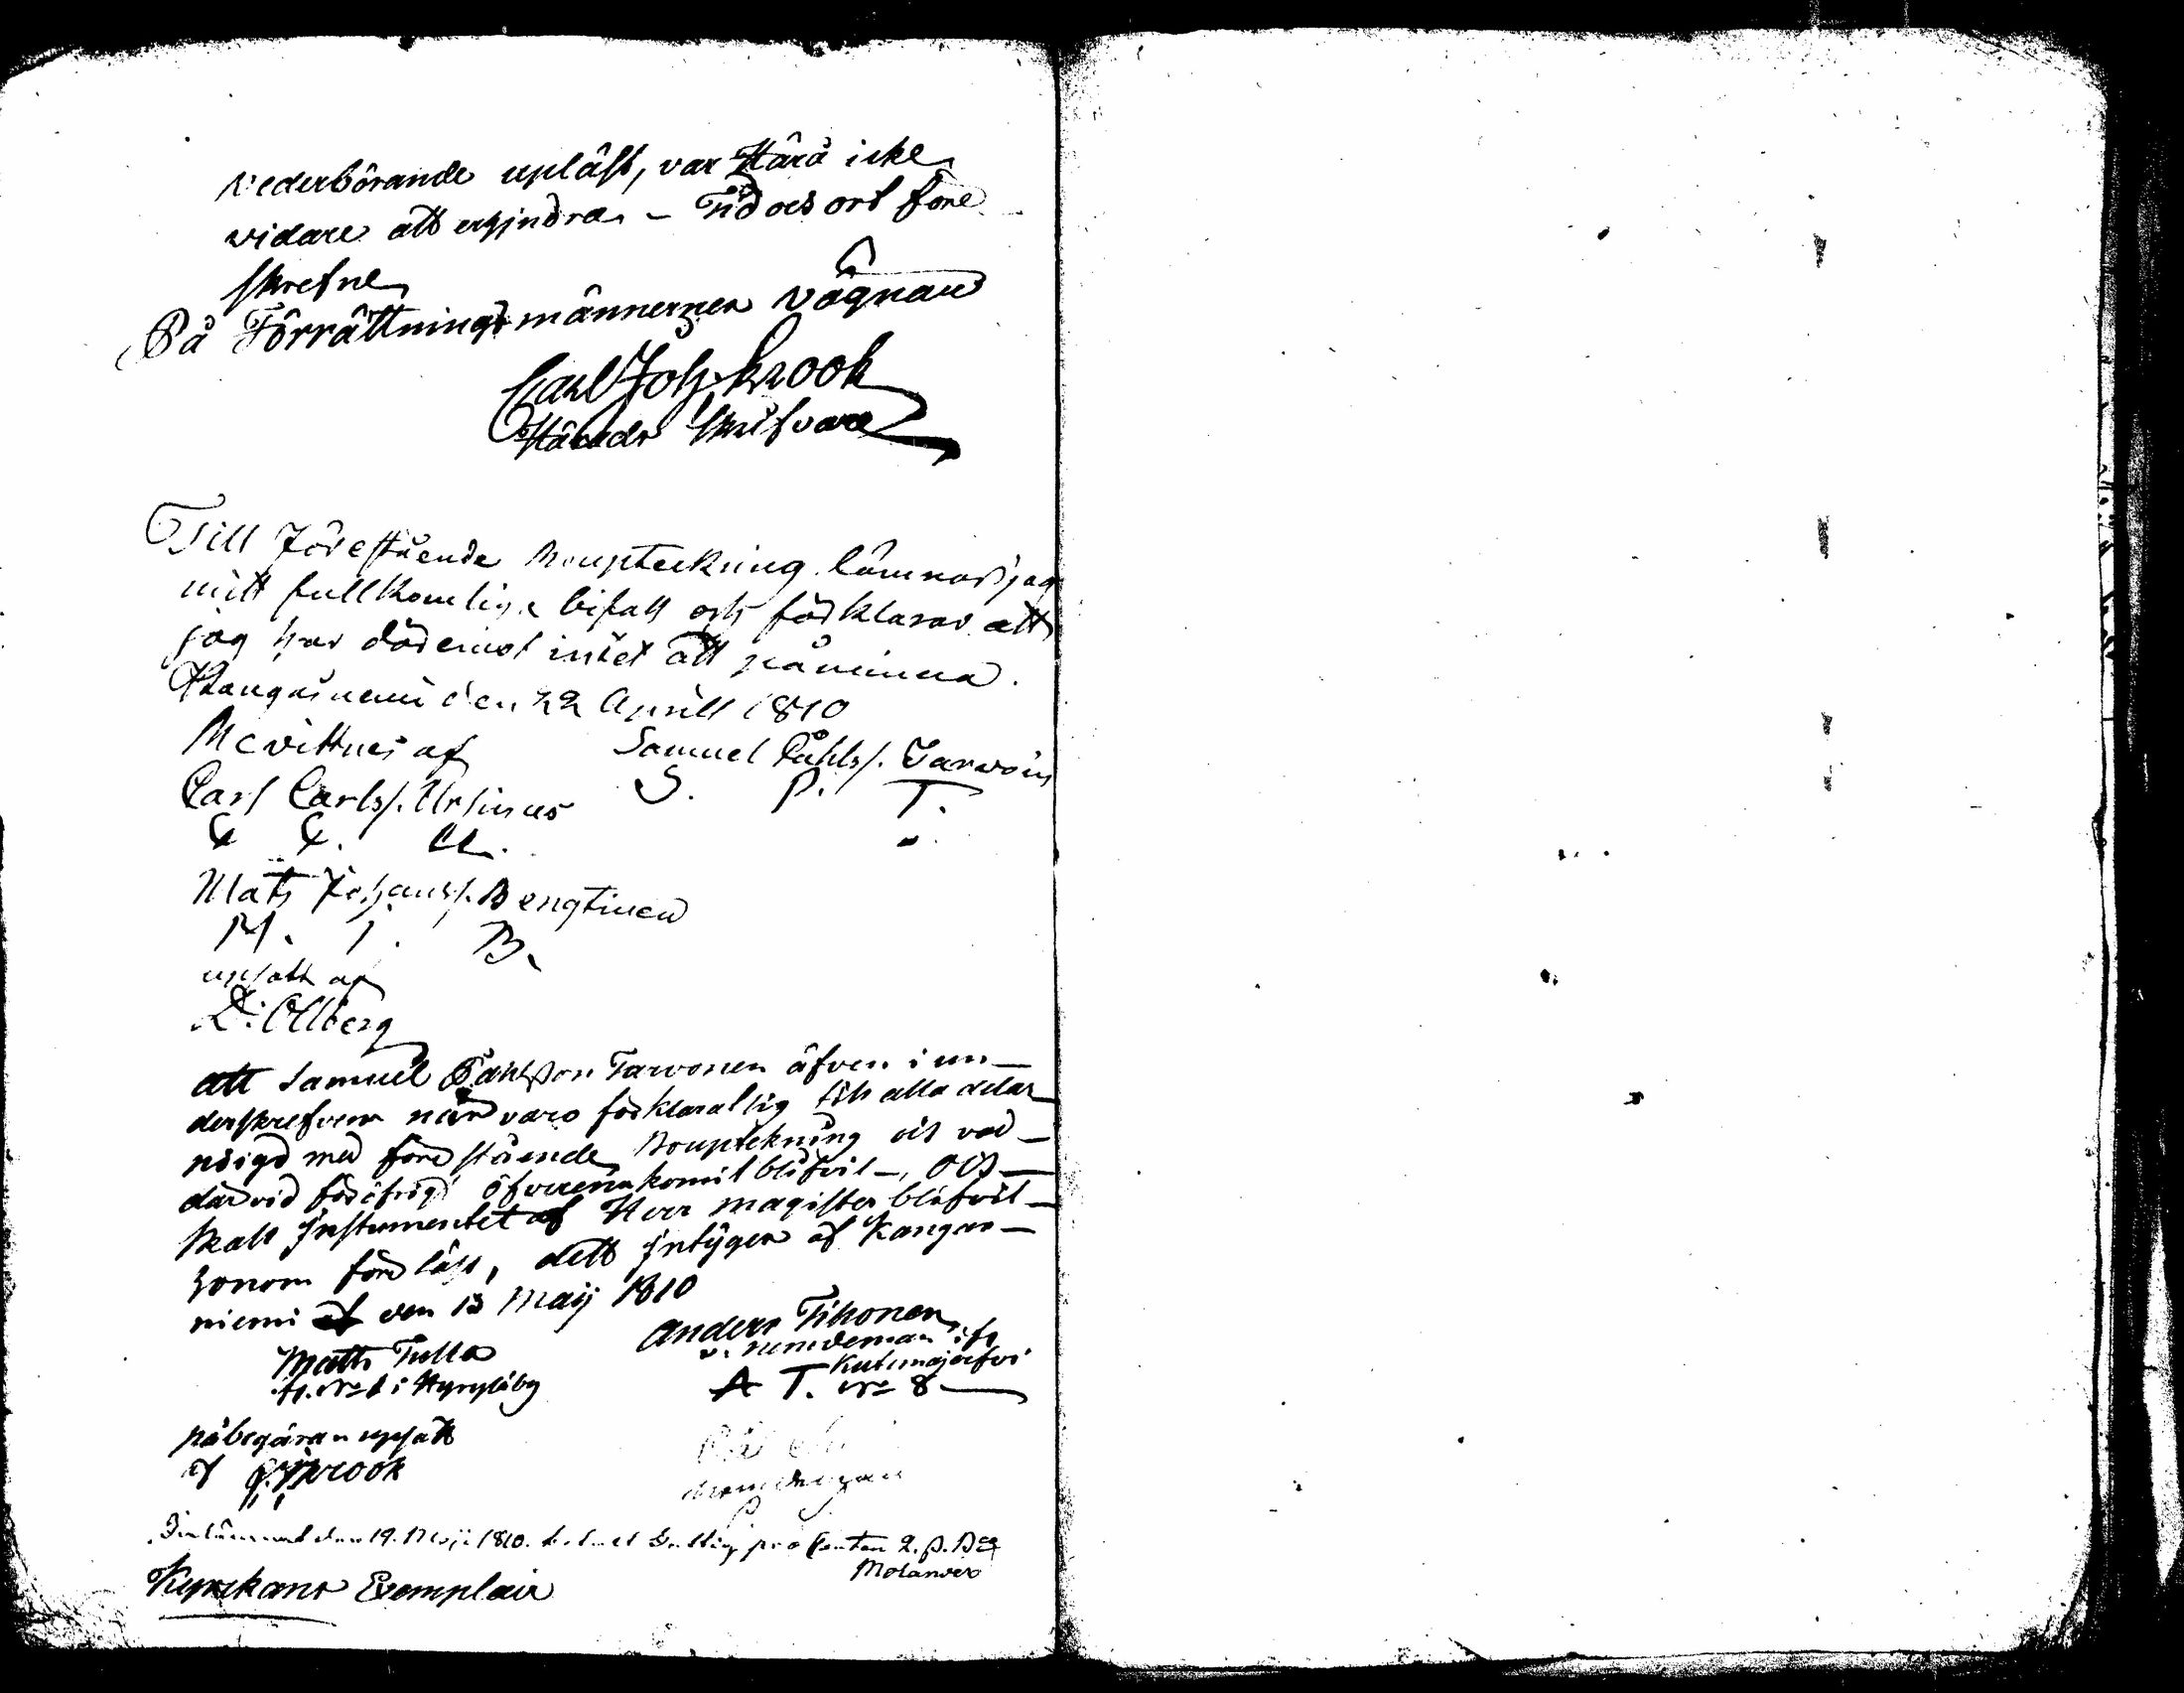 vederbörande upläst, var Hära icke
vidare att erhindra. – Tid och ort före
skrefne
På Förrättningsmännernes vägnar
Carl Joh. Krook
Härads Skrifvare
Till Förestående Bouptekning lämnar jag
mitt fullkomliga bifall och förklarar att
jag har däremot intet att påminna.
Kangasniemi den 22 Aprill 1810
Bevittnes af Samuel Påhlss. Tarvoin
Carl Carlss. Ursinus S. P. T.
C C. U.
Mats Johanss. Bengtinen
M. J. B.
upsatt af
D. Ollberg
att Samuel Påhlsson Tarvonen äfven i un–
derskrefvens närvaro förklarat sig till alla delar
nöigd med förestående Bouptekning och vad –
därvid föröfrigt öfverenskomit blifvit –, och –
skall Instrumentet af Herr Magister blifvit –
honom före läst, dett intygen af Kangas–
niemi den 13 Maij 1810
Matts Tulla Anders Tihonen
fr. No 1 i Hyryläby v. nemdeman ifr
Kutemajerfvi
A T. No 8
påbegäran upsatt
af C. J. Krook
nemdeman
Inlämnat den 19. Maji 1810. 2. ß. Bco
Molander
Kyrckans Exemplair